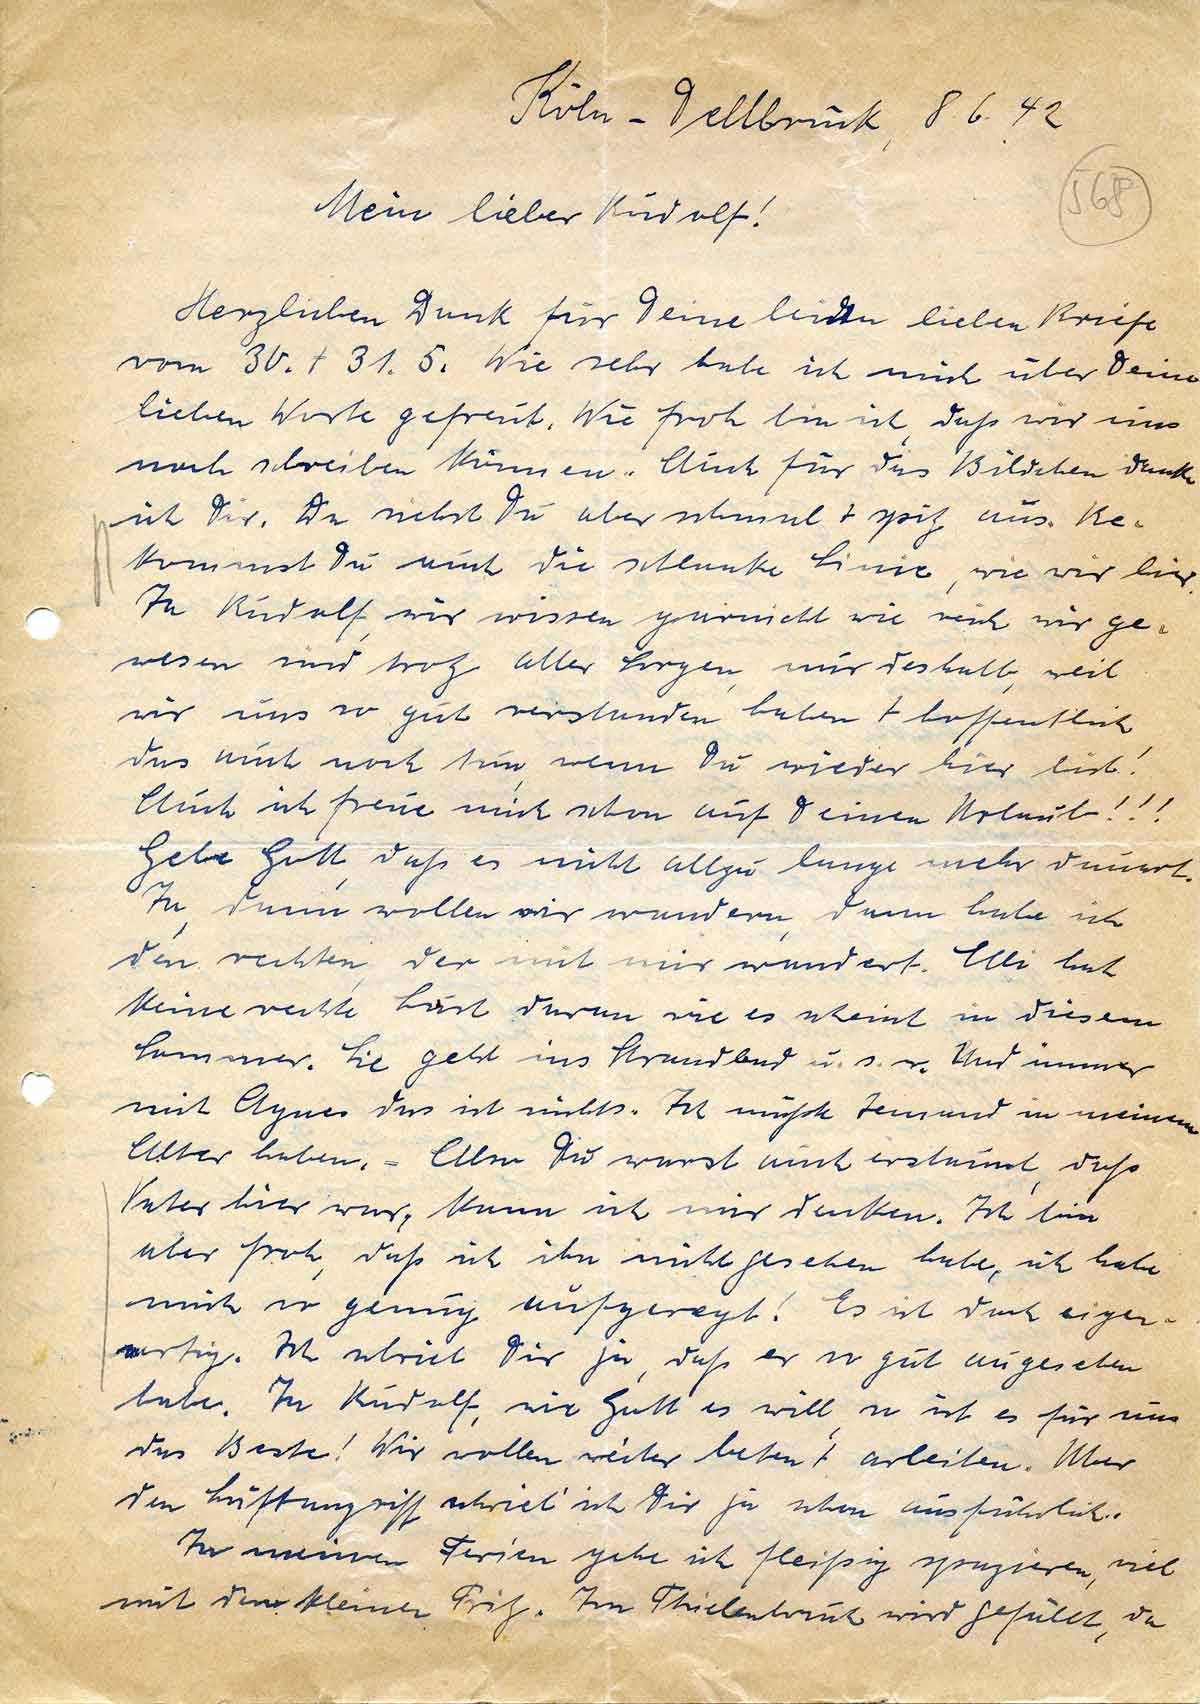 Köln-Dellbrück, 8.6.42
568
Mein lieber Rudolf!
Herzlichen Dank für Deine beiden lieben Briefe
vom 30. + 31. 5. Wie sehr habe ich mich über Deine
lieben Worte gefreut. Wie froh bin ich, daß wir uns
noch schreiben können. Auch für das Bildchen danke
ich Dir. Da siehst Du aber schmal + spitz aus. Be-
kommst Du auch die schlanke Linie, wie wir hier.
Ja Rudolf, wir wissen garnicht wie reich wir ge-
wesen sind trotz aller Sorgen, nur deshalb, weil
wir uns so gut verstanden haben + hoffentlich
das auch noch tun, wenn Du wieder hier bist!
Auch ich freue mich schon auf Deinen Urlaub!!!
Gebe Gott, daß es nicht allzu lange mehr dauert.
Ja, dann wollen wir wandern, dann habe ich
den rechten, der mit mir wandert. Elli hat
keine rechte Lust daran wie es scheint in diesem
Sommer. Sie geht ins Strandbad u.s.w. Und immer
mit Agnes das ist nichts. Ich müßte Jemand in meinem
Alter haben. - Also Du warst auch erstaunt, daß
Vater hier war, kann ich mir denken. Ich bin
aber froh, daß ich ihn nicht gesehen habe, ich habe
mich so genug aufgeregt! Es ist doch eigen-
artig. Ich schrieb Dir ja, daß er so gut ausgesehen
habe. Ja Rudolf, wie Gott es will, so ist es für uns
das Beste! Wir wollen weiter beten + arbeiten. Über
den Luftangriff schrieb ich Dir ja schon ausführlich.
In meinen Ferien gehe ich fleißig spazieren, viel
mit dem kleinen Fritz. Im Thielenbruch wird gefüllt, da